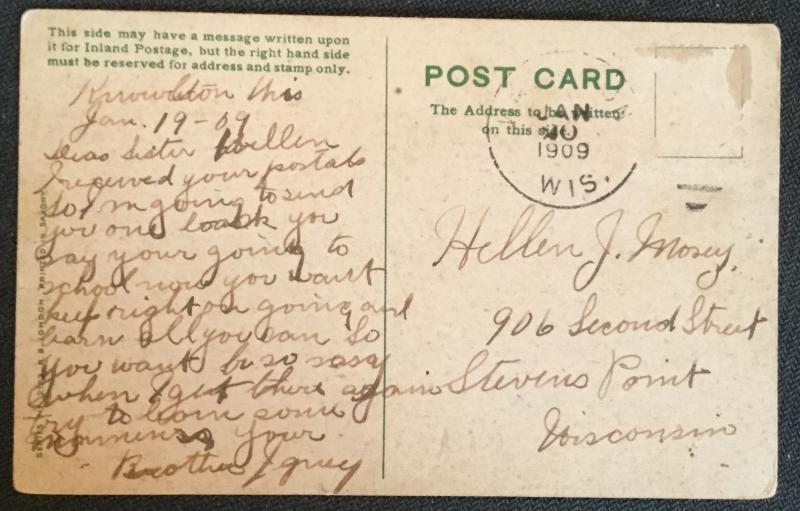 This side may have a message written upon
it for Inland Postage, but the right hand side
must be reserved for address and stamp only.
Knowlton Wis
Jan. 19-09
Dear Sister Hellen
I received your postals
So I'm going to send
you one back you
say your going to
school now you want
keep right on going and
learn all you can So
you want be so sassy
when I get there again
try to learn some
your
Brother
POST CARD
The Address to be written
on this side.
JAN
1909
WIS.
Hellen J. Mosey,
906 Second Street
Stevens Point
Wisconsin